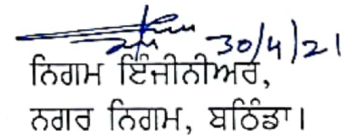 30/4/21
ਨਿਗਮ ਇੰਜੀਨੀਅਰ,
ਨਗਰ ਨਿਗਮ, ਬਠਿੰਡਾ।